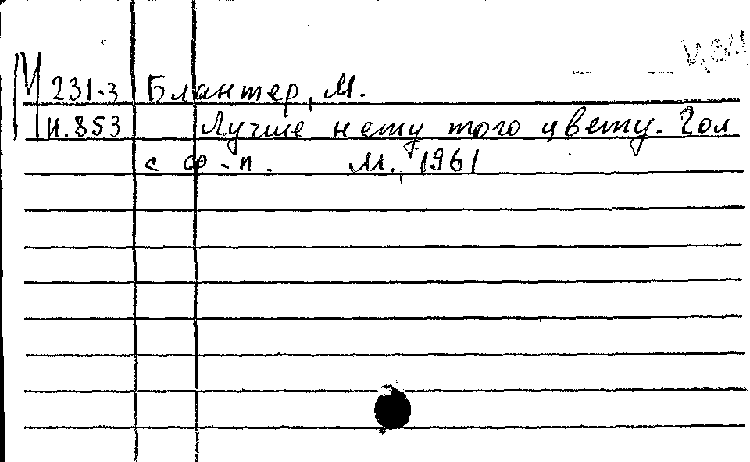 М 231-3 Блантер, М.
н.853 Лучше нету того цвету. Гол
с ф-п. М., 1961